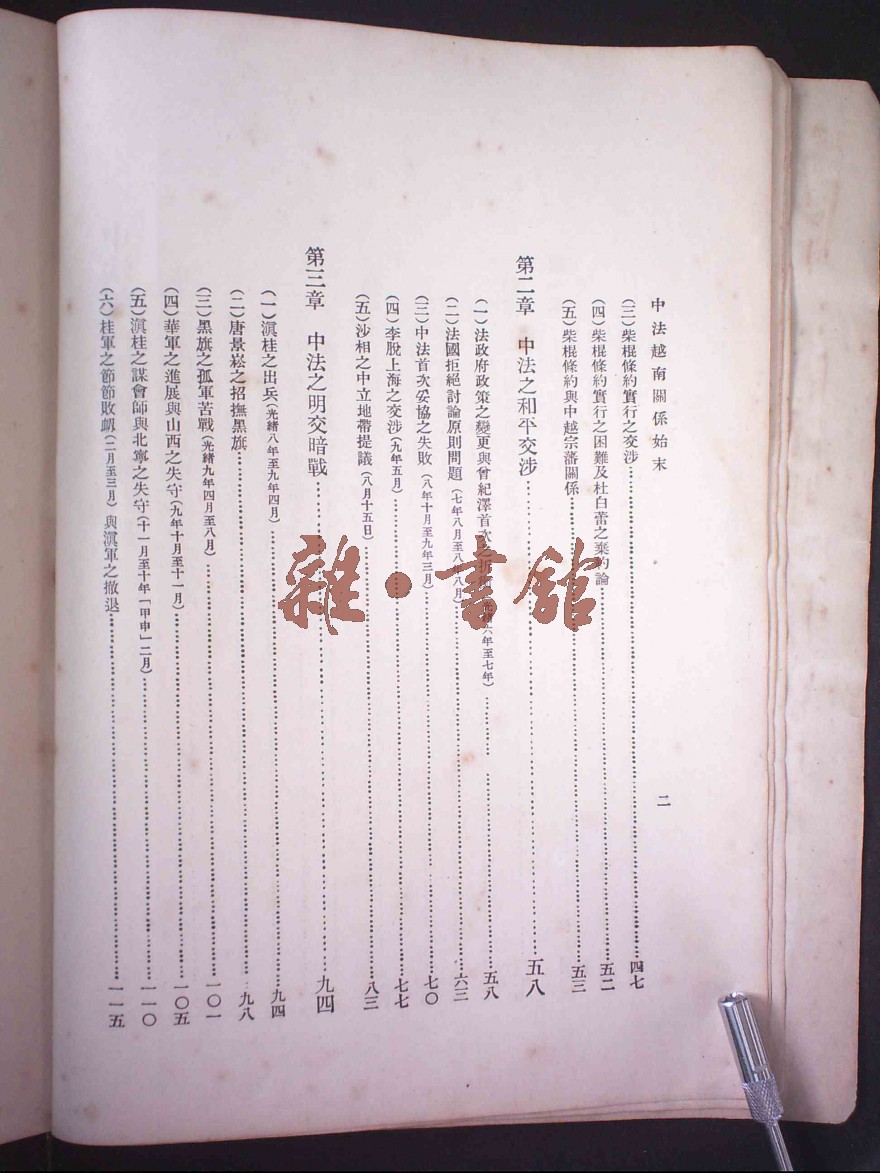 中法越南關係始末
二
(三)柴棍條約實行之交涉……四七
(四)柴棍條約實行之困難及杜白蕾之棄約論……五二
(五)柴棍條約與中越宗藩關係……五三
第二章 中法之和平交涉……五八
(一)法政府政策之變更與曾紀澤首次之折 六年至七年)……五八
(二)法國拒絕討論原則問題(七年八月至八年八月)……六三
(三)中法首次妥協之失敗(八年十月至九年三月)……七〇
(四)李脫上海之交涉(九年五月)……七七
(五)沙相之中立地帶提議(八月十五日)……八三
第三章 中法之明交暗戰……九四
(一)滇桂之出兵(光緒八年至九年四月)……九四
(二)唐景崧之招撫黑旗……九八
(三)黑旗之孤軍苦戰(光緒九年四月至八月)……一〇一
(四)華軍之進展與山西之失守(九年十月至十一月)……一〇五
(五)滇桂之謀會師與北寧之失守(十一月至十年「甲申」二月)……一一〇
(六)桂軍之節節敗衂(二月至三月)與滇軍之撤退……一一五
雜·書館